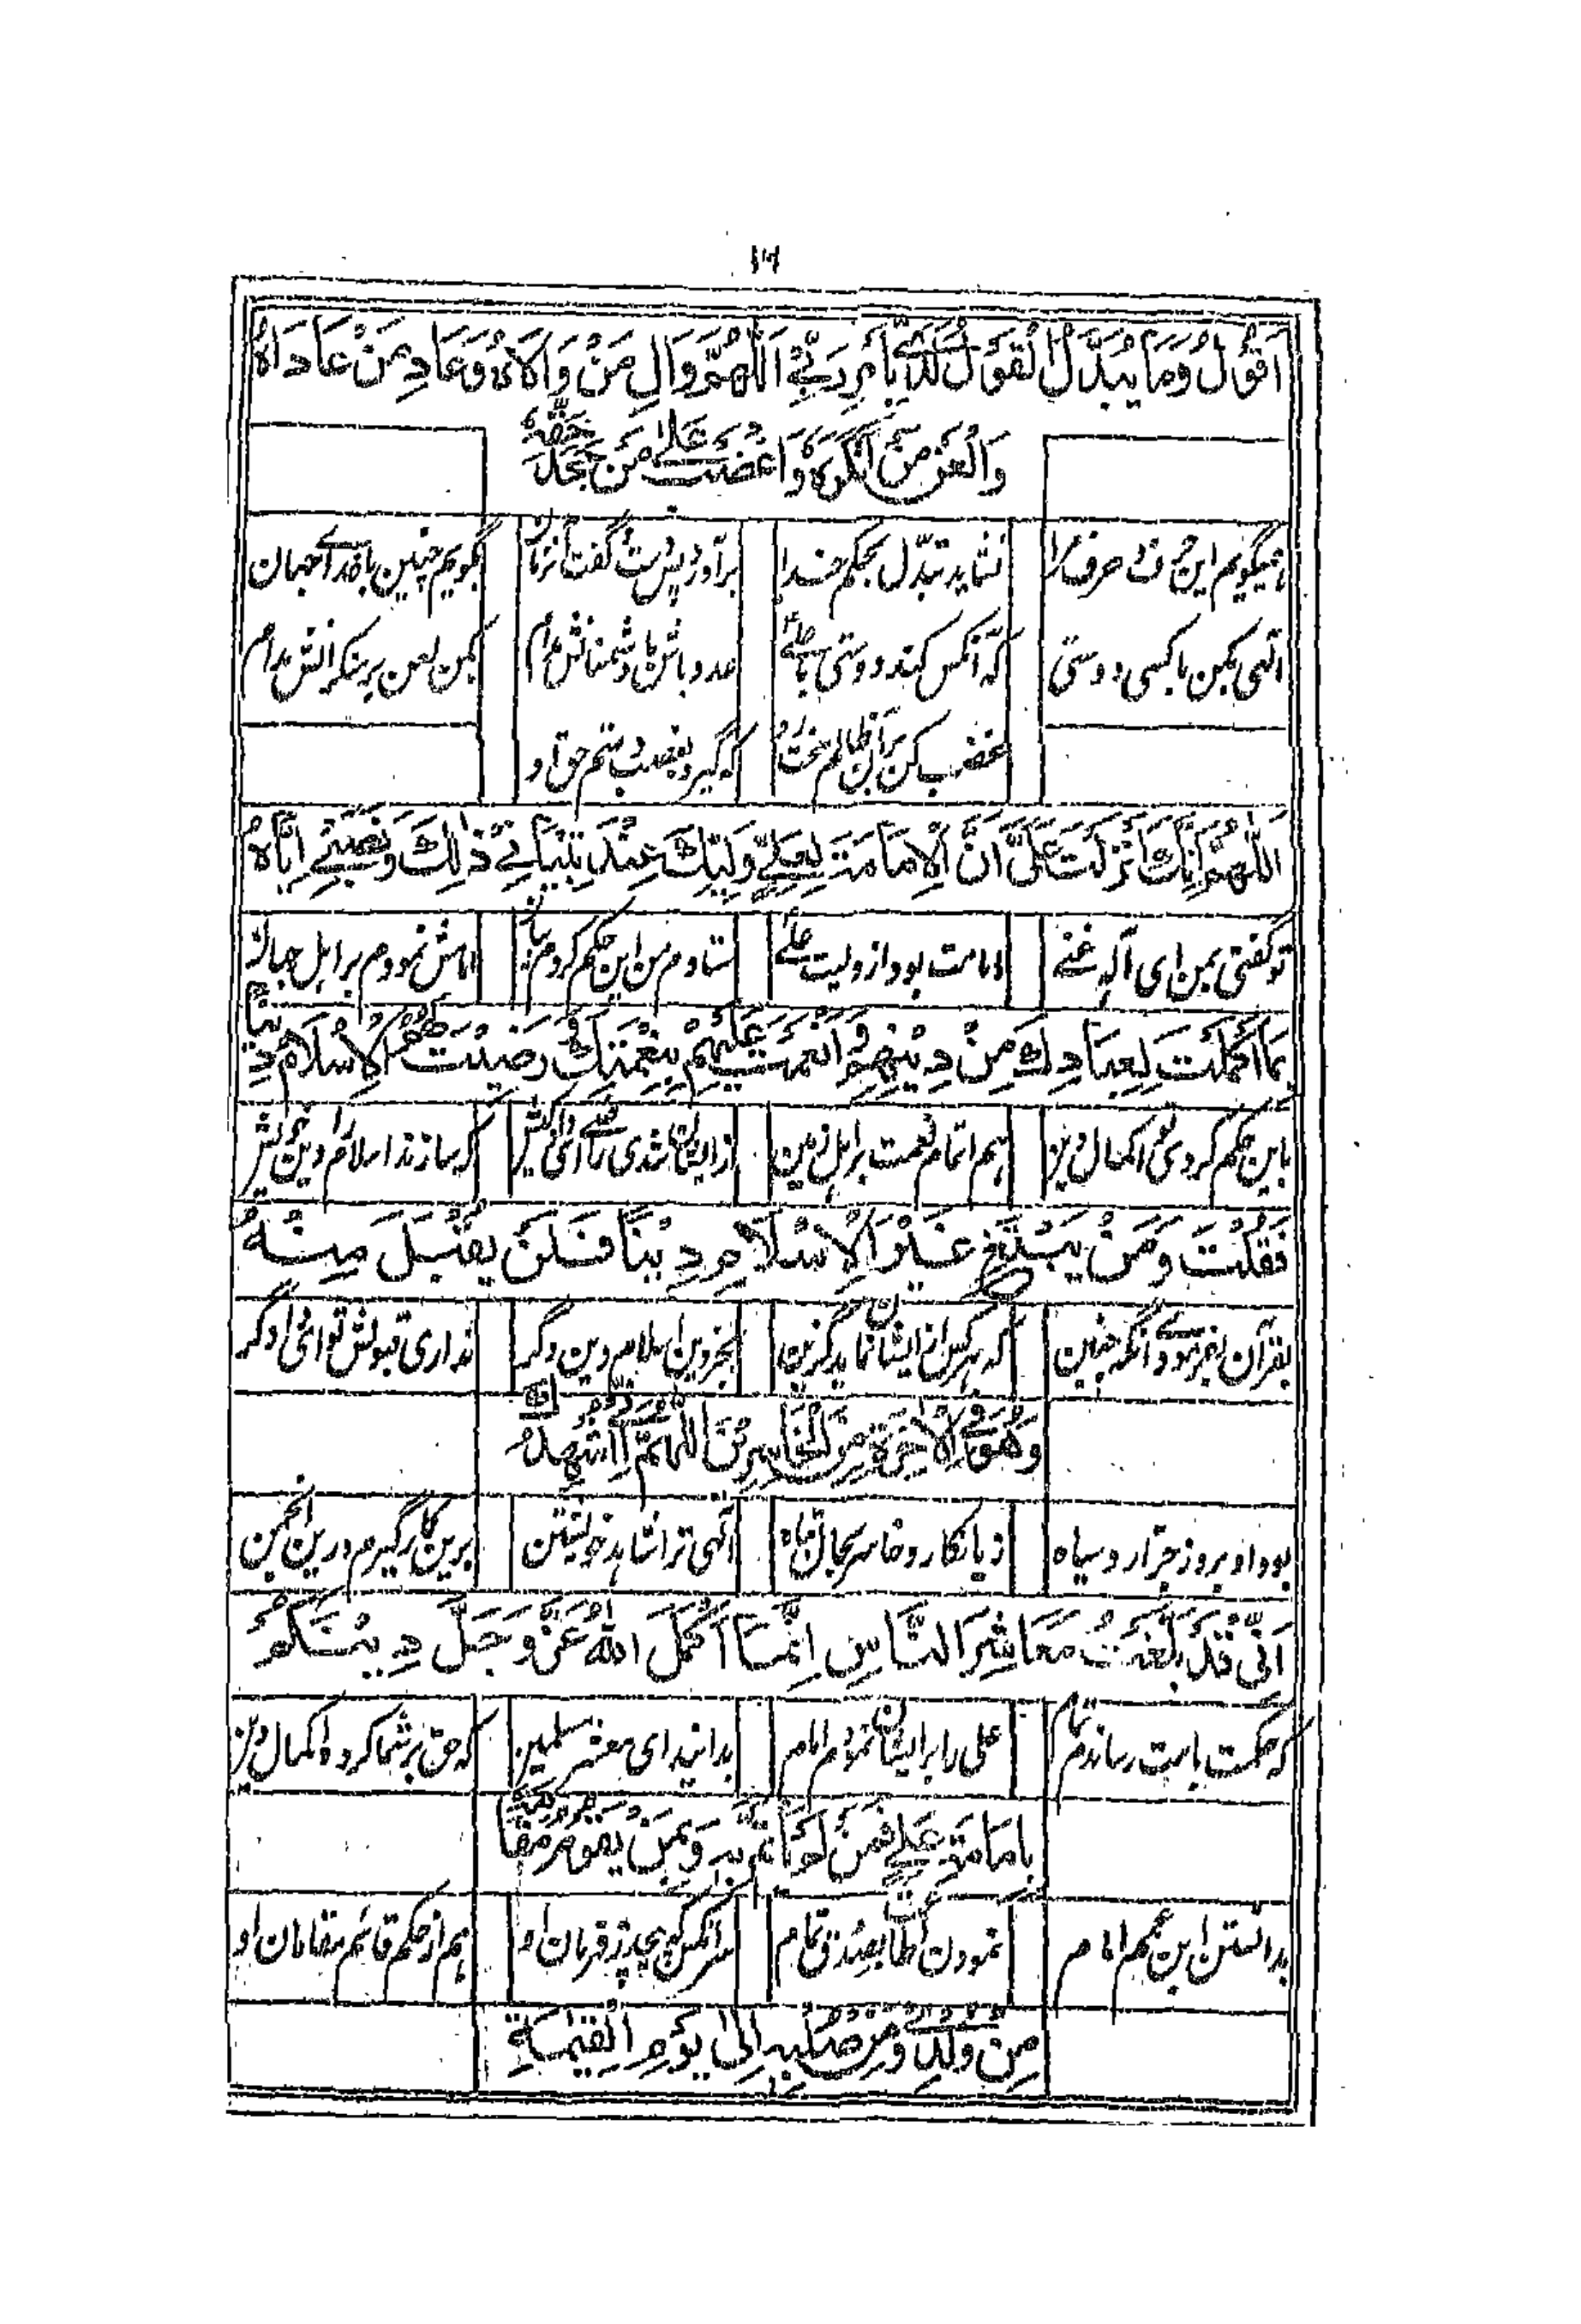 ۱۶
اَقُوْلُ وَمَا يُبَدَّلُ الْقَوْلُ لَدَيَّ بِاَمْرِ رَبِّيْ اَللّٰهُمَّ وَالِ مَنْ وَالَاهُ وَعَادِ مَنْ عَادَاهُ
وَالْعَنْ مَنْ اَنْكَرَهُ وَاغْضَبْ عَلٰى مَنْ جَحَدَ حَقَّهُ
نشاید تبدّل بحکم خدا
بگویم چنین با خدای جهان
الهی بکن با کسی دوستی که آنکس کند دوستی با علی
عدو باش با دشمنانش مدام بکن لعن بر منکرانش مدام
غضب کن بران ظالم که گیرد بغصب و ستم حق او
اَللّٰهُمَّ اِنَّكَ اَنْزَلْتَ عَلَيَّ اَنَّ الْاِمَامَةَ لِعَلِيٍّ وَلِيِّكَ عِنْدَ تِبْيَانِيْ ذٰلِكَ وَنَصْبِيْ اِيَّاهُ
تو گفتی بمن ای اله غنی امامت بود از ولیت علی
ستادم من این حکم کردم امامش نمودم بر اهل جهان
بِمَا اَكْمَلْتَ لِعِبَادِكَ مِنْ دِيْنِهِمْ وَاَتْمَمْتَ عَلَيْهِمْ بِنِعْمَتِكَ وَرَضِيْتَ لَهُمُ الْاِسْلَامَ دِيْنًا
باین حکم کردی تو اکمال دین هم اتمام نعمت بر اهل زمین
از ایشان شدی راضی که سازند اسلام را دین خویش
فَقُلْتَ وَمَنْ يَبْتَغِ غَيْرَ الْاِسْلَامِ دِيْنًا فَلَنْ يُقْبَلَ مِنْهُ
بقرآن بفرمودی آنگه چنین که هر کس از ایشان نماید گزین
بجز دین اسلام دین دگر نداری قبولش تو ای دادگر
وَهُوَ فِي الْاٰخِرَةِ مِنَ الْخَاسِرِيْنَ اَللّٰهُمَّ اِنِّيْ اُشْهِدُكَ
بود او بروز جزا رو سیاه زیانکار و خاسر بحال تباه
الهی ترا شاهد خویشتن برین کار گیرم درین انجمن
اَنِّيْ قَدْ بَلَّغْتُ مَعَاشِرَ النَّاسِ اِنَّمَا اَكْمَلَ اللهُ عَزَّ وَجَلَّ دِيْنَكُمْ
که حکمت بامت رساندم تمام علی را بر ایشان نمودم امام
بدانید ای معشر مسلمین که حق بر شما کرد اکمال دین
بِاِمَامَةِ عَلِيٍّ فَمَنْ لَمْ يَاْتَمَّ بِهِ وَبِمَنْ يَقُوْمُ مَقَامَهُ
بدانستن ابن عمم امام نمودن اطاعت بصدق تمام
هر آنکس که پیچد ز فرمان او هم از حکم قائم مقامان او
مِنْ وُلْدِيْ وَمِنْ صُلْبِهِ اِلٰى يَوْمِ الْقِيٰمَةِ